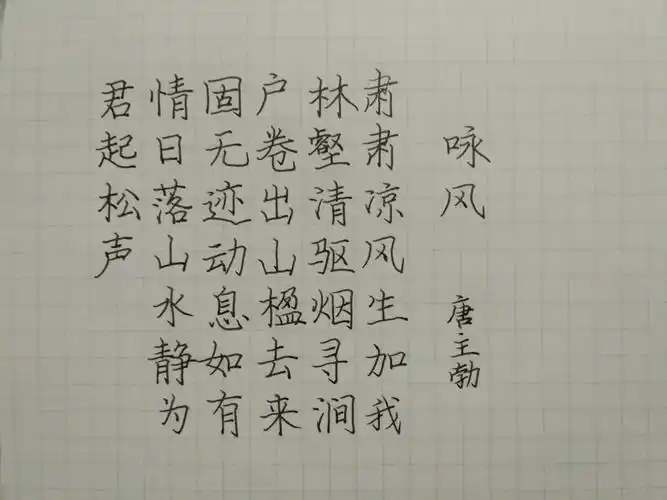 咏风
唐主勃
肃肃凉风生加我
林壑清驱烟寻涧
户卷出山楹去来
固无迹动息如有
情日落山水静为
君起松声